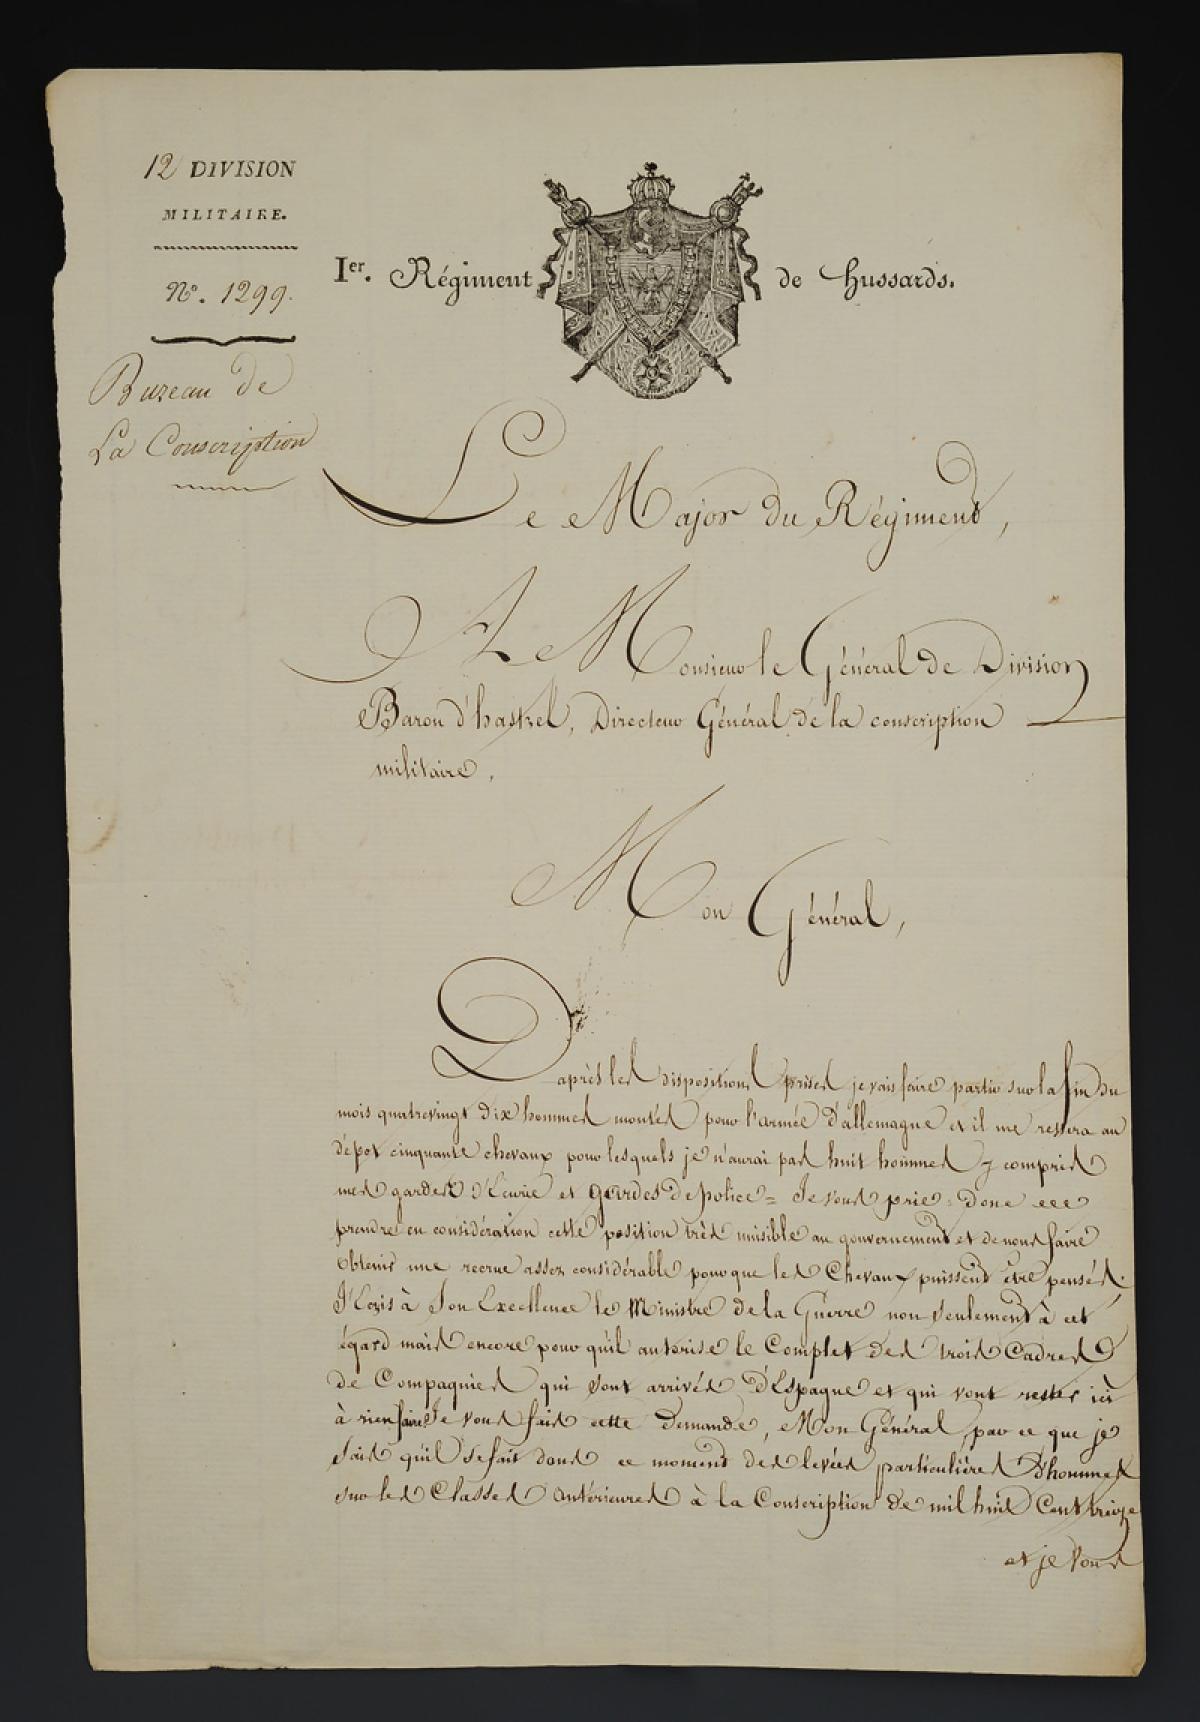 12 DIVISION
MILITAIRE.
N°. 1299.
Bureau de
La Conscription
Ier. Régiment de hussards.
Le Major du Régiment,
A Monsieur le Général de Division
Baron d'hastrel, Directeur Général de la conscription
militaire,
Mon Général,
Daprès les dispositions prises je vais faire partir sur la fin du
mois quatrevingt dix hommes montés pour l'armée d'allemagne et il me restera au
dépot cinquante chevaux pour lesquels je n'aurai pas huit hommes y compris
mes gardes d'Ecurie et gardes de police = Je vous prie donc de
prendre en considération cette position très nuisible au gouvernement et de nous faire
obtenir une recrue assez considérable pour que les chevaux puissent être pensés.
J'Ecris à Son Excellence le Ministre de la Guerre non seulement à cet
égard mais encore pour qu'il autorise le Complet des trois Cadres
de Compagnies qui sont arrivés d'Espagne et qui vont rester ici
à rien faire Je vous fais cette demande, Mon Général, par ce que je
sais qu'il se fait dans ce moment des levées particulières d'hommes
sur les Classes antérieures à la Conscription de mil huit Cent treize
et je vous